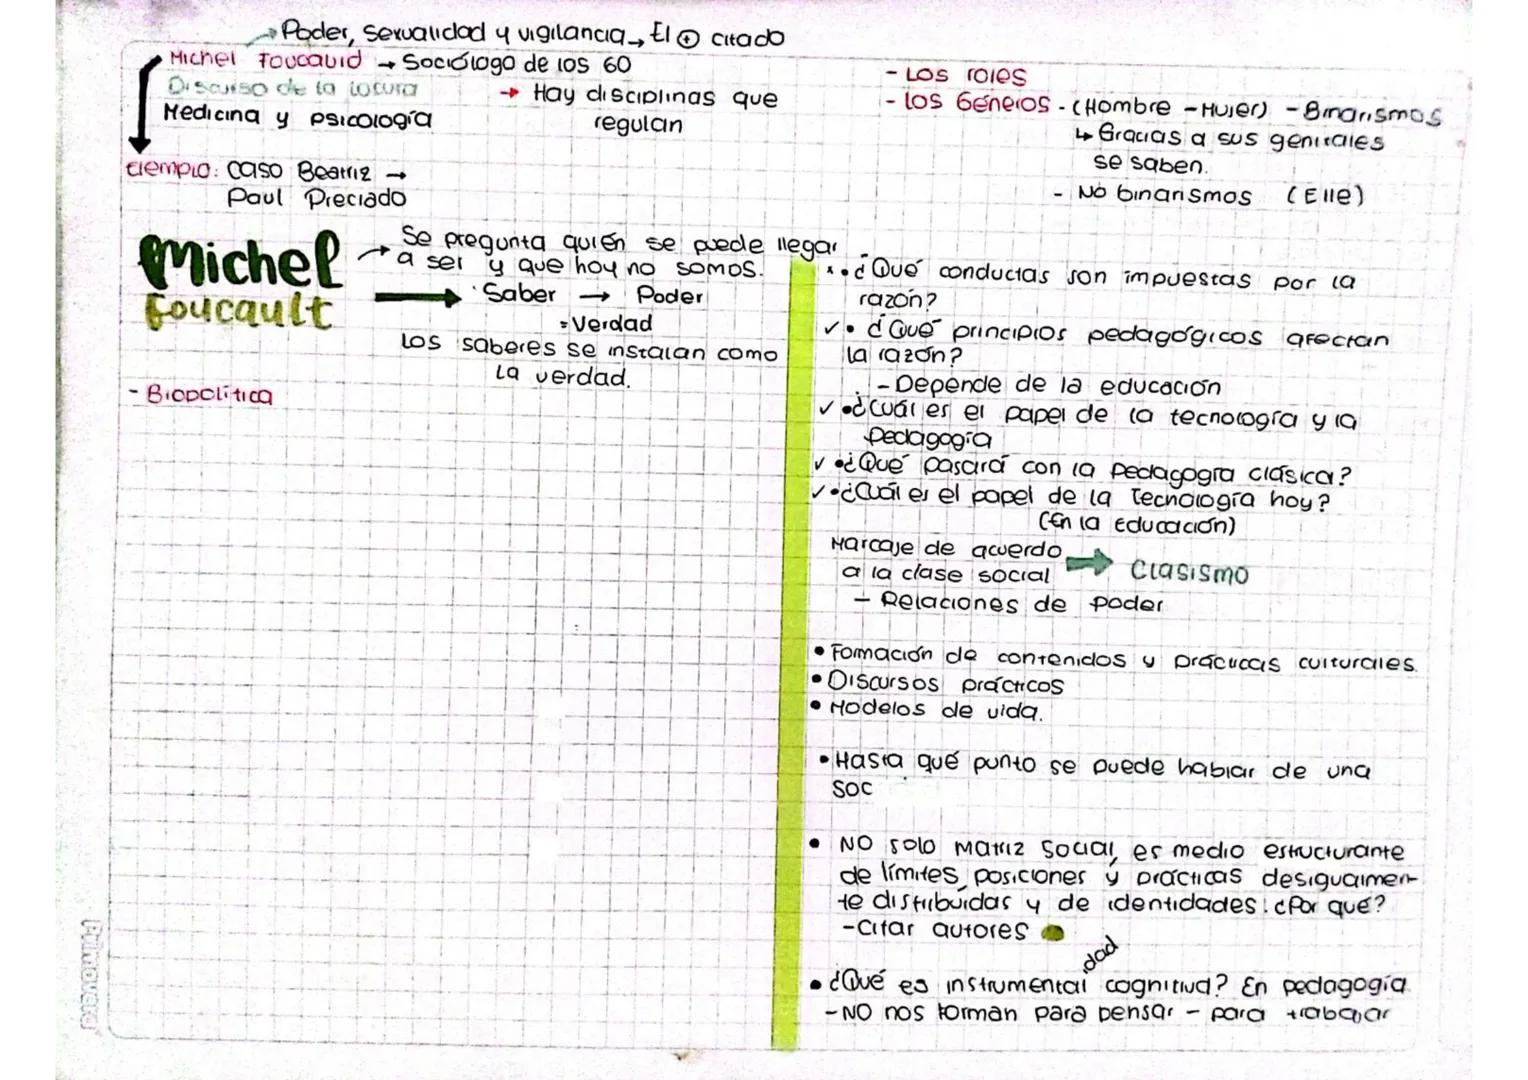 → Poder, Sexualidad y vigilancia → El ⊕ citado
Michel Foucauld → Sociólogo de los 60
Discurso de la locura
Medicina y psicología
→ Hay disciplinas que
regulan
Ejemplo: Caso Beatriz →
Paul Preciado
- Los roles
- los Géneros - (Hombre - Mujer) - Binarismos
↳ Gracias a sus genitales
se saben.
- No binarismos (Elle)
Michel
Foucault
→ Se pregunta quién se puede llegar
a ser y que hoy no somos.
→ Saber → Poder
= Verdad
Los saberes se instalan como
la verdad.
- Biopolítica
• ¿Qué conductas son impuestas por la
razón?
✓ • ¿Qué principios pedagógicos afectan
la razón?
- Depende de la educación
✓ • ¿Cuál es el papel de la tecnología y la
Pedagogía
✓ • ¿Qué pasará con la Pedagogía clásica?
✓ • ¿Cuál es el papel de la Tecnología hoy?
(En la educación)
Marcaje de acuerdo
a la clase social → Clasismo
- Relaciones de poder
• Formación de contenidos y prácticas culturales.
• Discursos prácticos
• Modelos de vida.
• Hasta qué punto se puede hablar de una
soc
• NO solo Matriz Social, es medio estructurante
de límites, posiciones y prácticas desigualmen-
te distribuidas y de identidades. ¿Por qué?
- Citar autores
• ¿Qué es instrumentalidad cognitiva? En pedagogía
- NO nos forman para pensar - para trabajar
Primavera